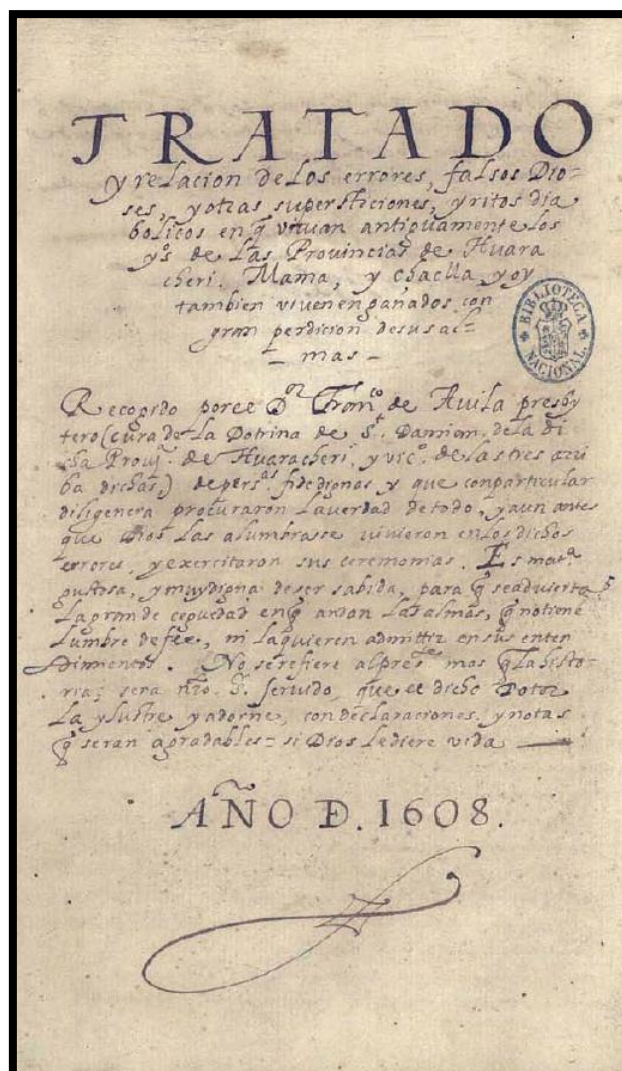 TRATADO
y relacion de los errores, falsos Dio=
ses, y otras supersticiones, y ritos dia
bolicos en q̃ viuian antiguamente los
yos de las Prouincias de Huara
cheri. Mama, y chaclla, y oy
tambien viuen engañados con
gran perdicion de sus al=
- mas -
BIBLIOTECA
NACIONAL
Recogido por el Dor Franco de Auila presby
tero (cura de la Dotrina de St. Damian de la di
cha Prouja. de Huaracheri, y vico. de las tres arri
ba dichas) de persas fidedignas y que con particular
diligencia procuraron la verdad de todo, y aun antes
que Dios las alumbrasse vivieron en los dichos
errores, y exercitaron sus ceremonias. Es mata.
gustosa, y muy digna de ser sabida, para q̃ se aduierta
la grande ceguedad en q̃ andan las almas, q̃ no tienẽ
lumbre de fee, ni la quieren admittir en sus enten
dimientos. No se refiere al presте mas q̃ la histo-
ria; sera nro. Sr. seruido, que el dicho Dotor
la ylustre y adorne, con declaraciones, y notas
q̃ seran agradables = si Dios le diere vida —
AÑO D. 1608.